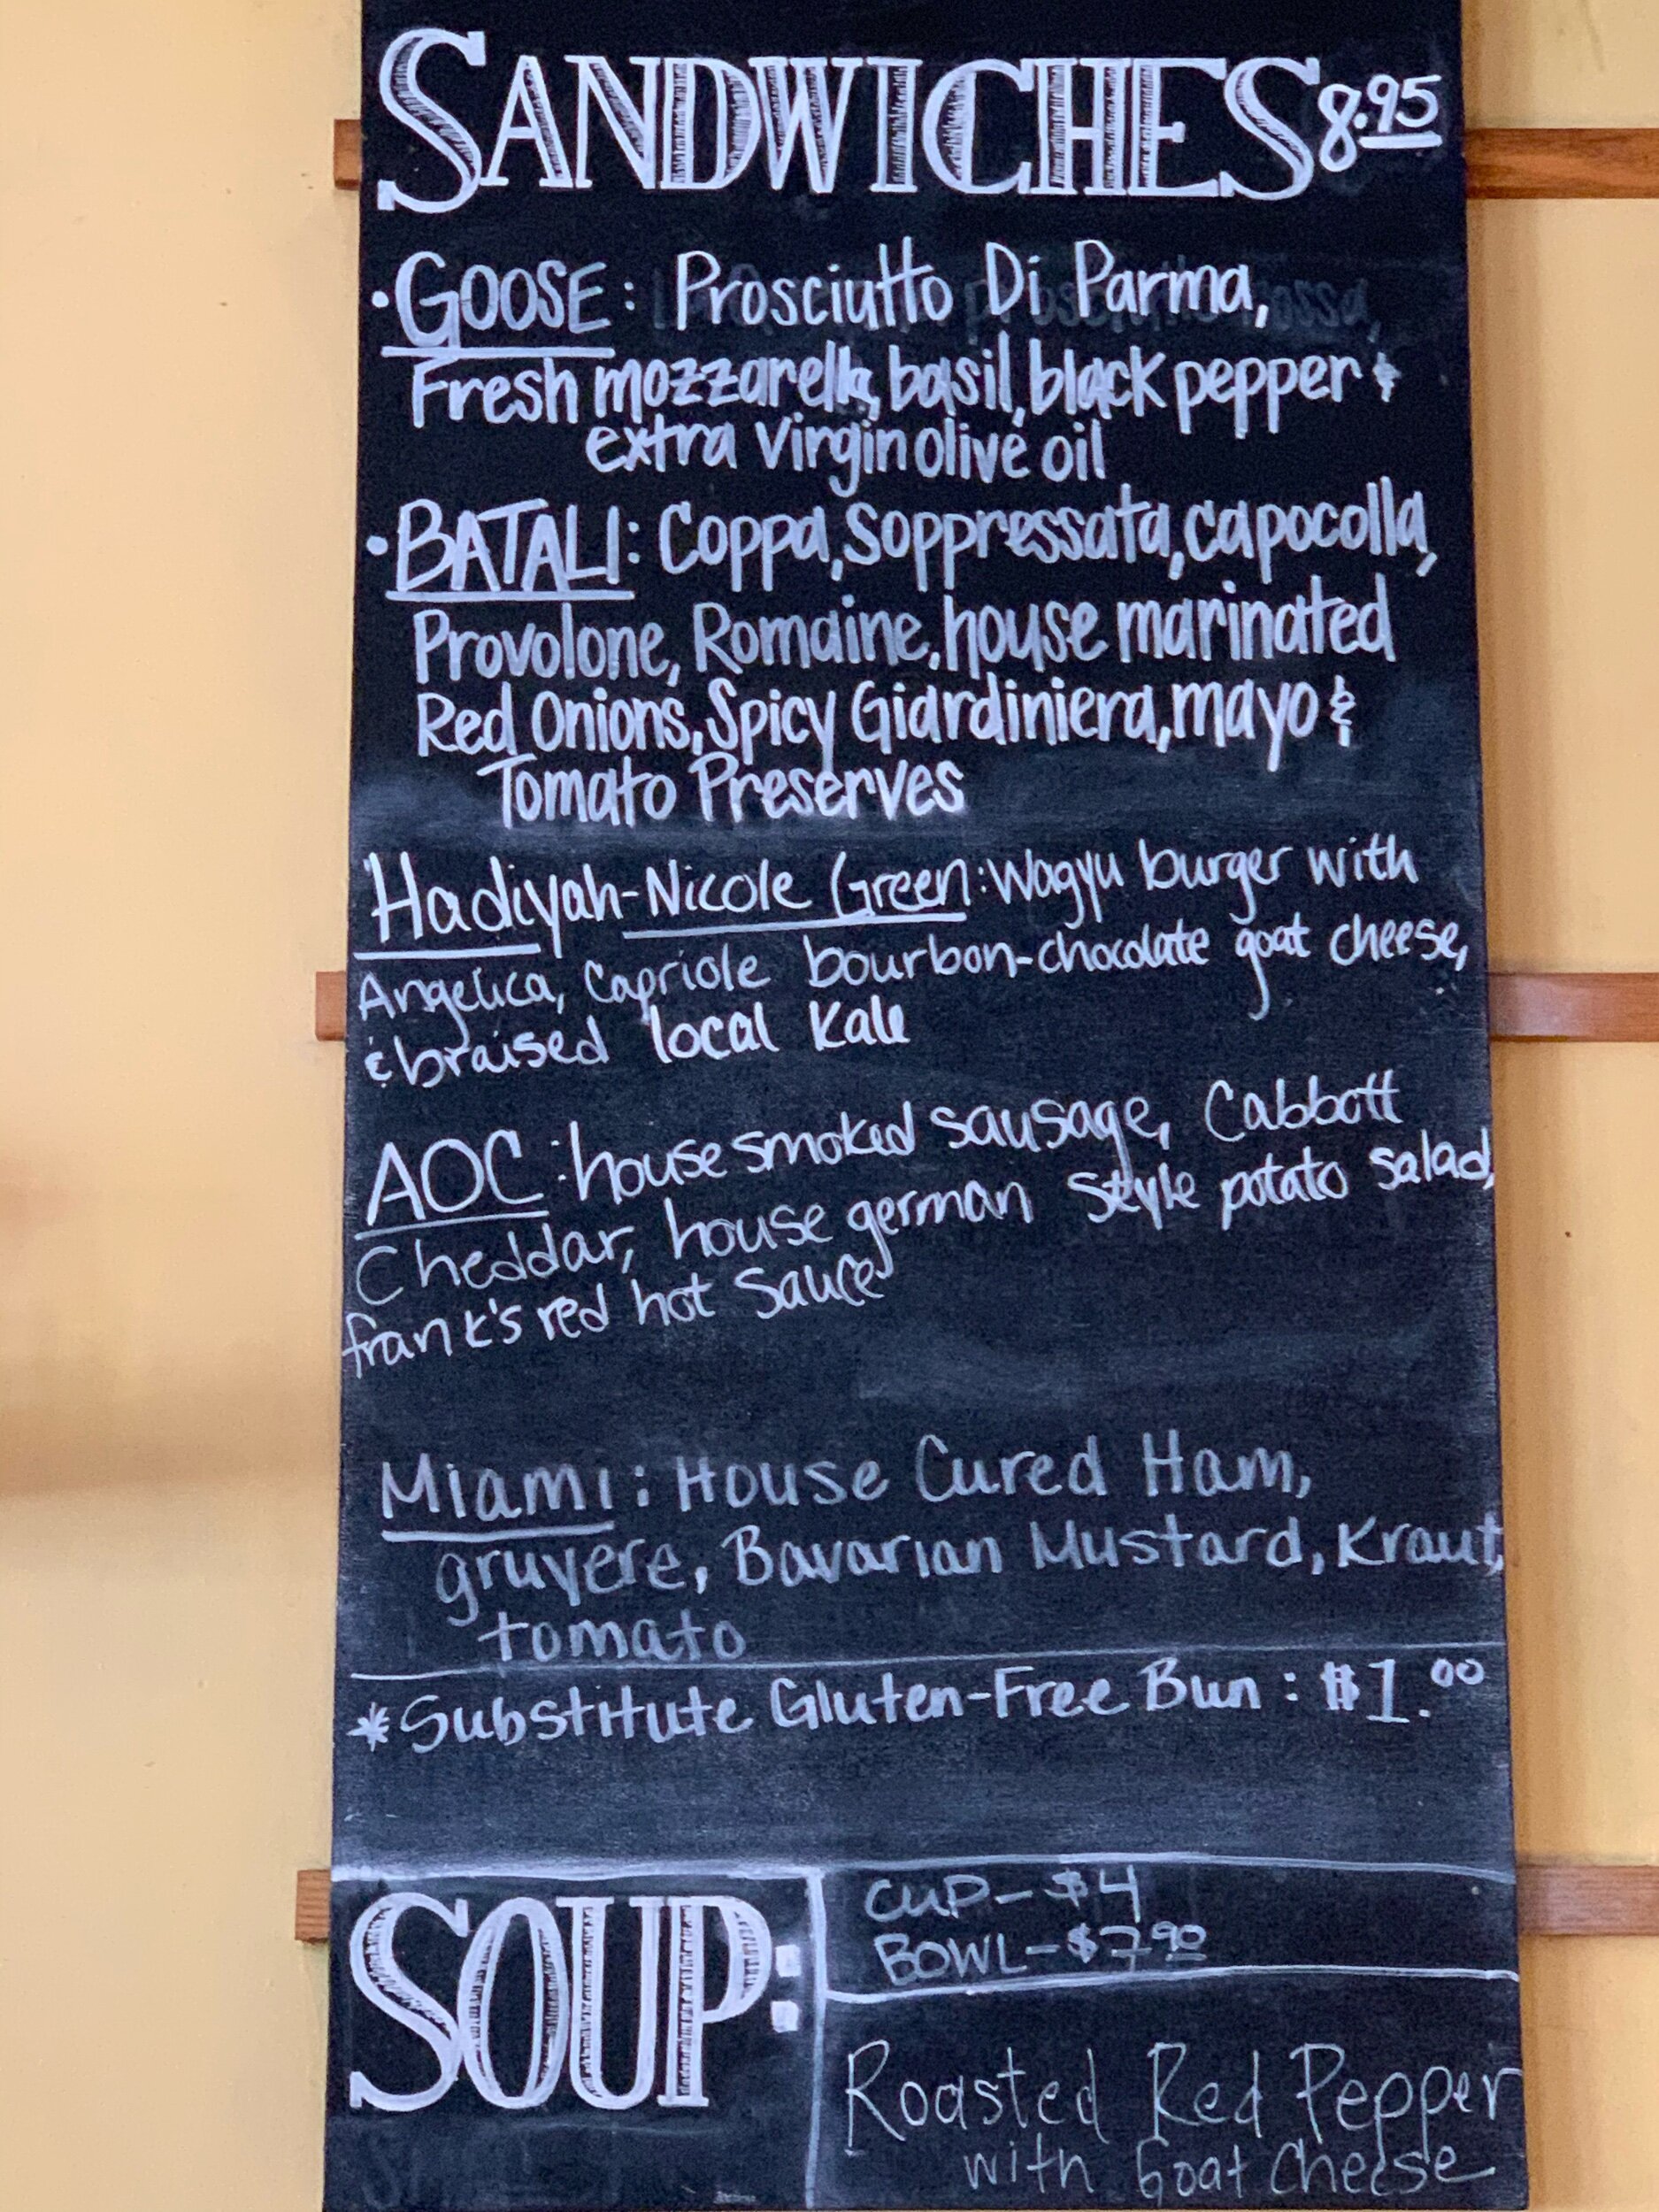 SANDWICHES 8.95
• GOOSE: Prosciutto Di Parma,
Fresh mozzarella, basil, black pepper &
extra virgin olive oil
• BATALI: Coppa, Soppressata, capocolla,
Provolone, Romaine, house marinated
Red Onions, Spicy Giardiniera, mayo &
Tomato Preserves
Hadiyah-Nicole Green: Wagyu burger with
Angelica, Capriole bourbon-chocolate goat cheese,
& braised local Kale
AOC: house smoked sausage, Cabbott
Cheddar, house german style potato salad,
frank's red hot Sauce
Miami: House Cured Ham,
gruyere, Bavarian Mustard, Kraut,
tomato
*Substitute Gluten-Free Bun: $1.00
SOUP:
CUP- $4
BOWL- $7.90
Roasted Red Pepper
with Goat Cheese